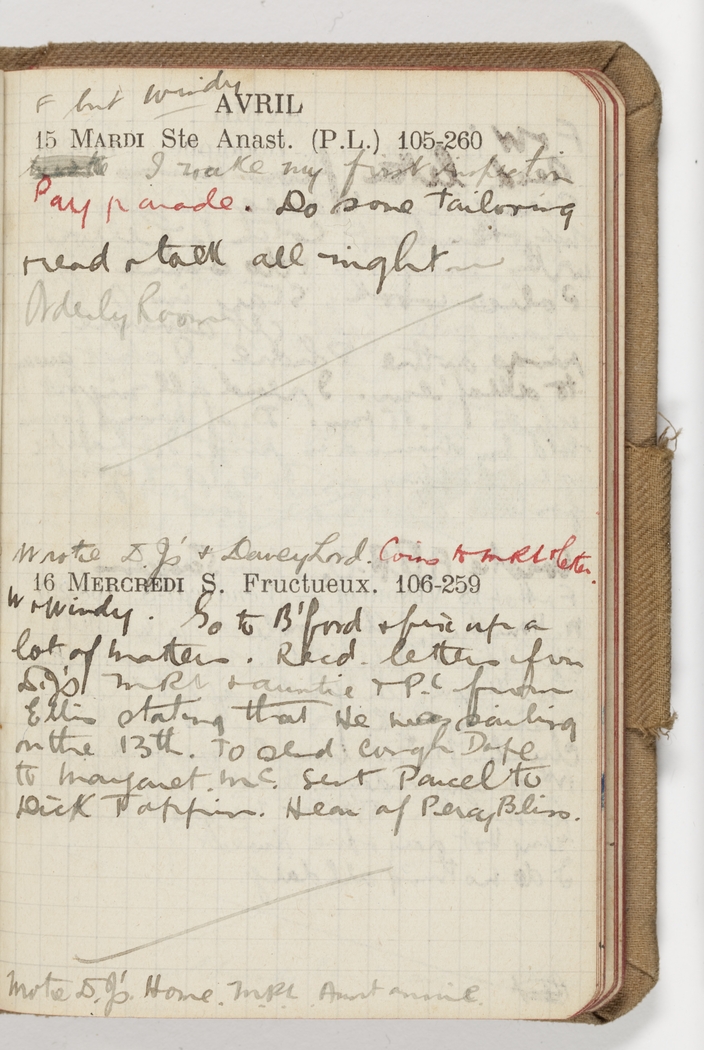 F but windy
AVRIL
15 MARDI Ste Anast. (P.L.) 105-260
I make my first inspection
Pay parade. Do some tailoring
read & talk all night
Orderly Room
Wrote D.J's & Davey Lord. Coins to MRL & letter.
16 MERCREDI S. Fructueux. 106-259
W & Windy. Go to B'ford & fix up a
lot of matters. Recd. letters from
D.J's MRL & auntie & P.C from
Ellis stating that He was sailing
on the 13th. To send Cough Dope
to Margaret. Mc. Sent Parcel to
Dick Poppin. Hear of Percy Bliss.
Wrote D.J's. Home. MRL Aunt Annie.